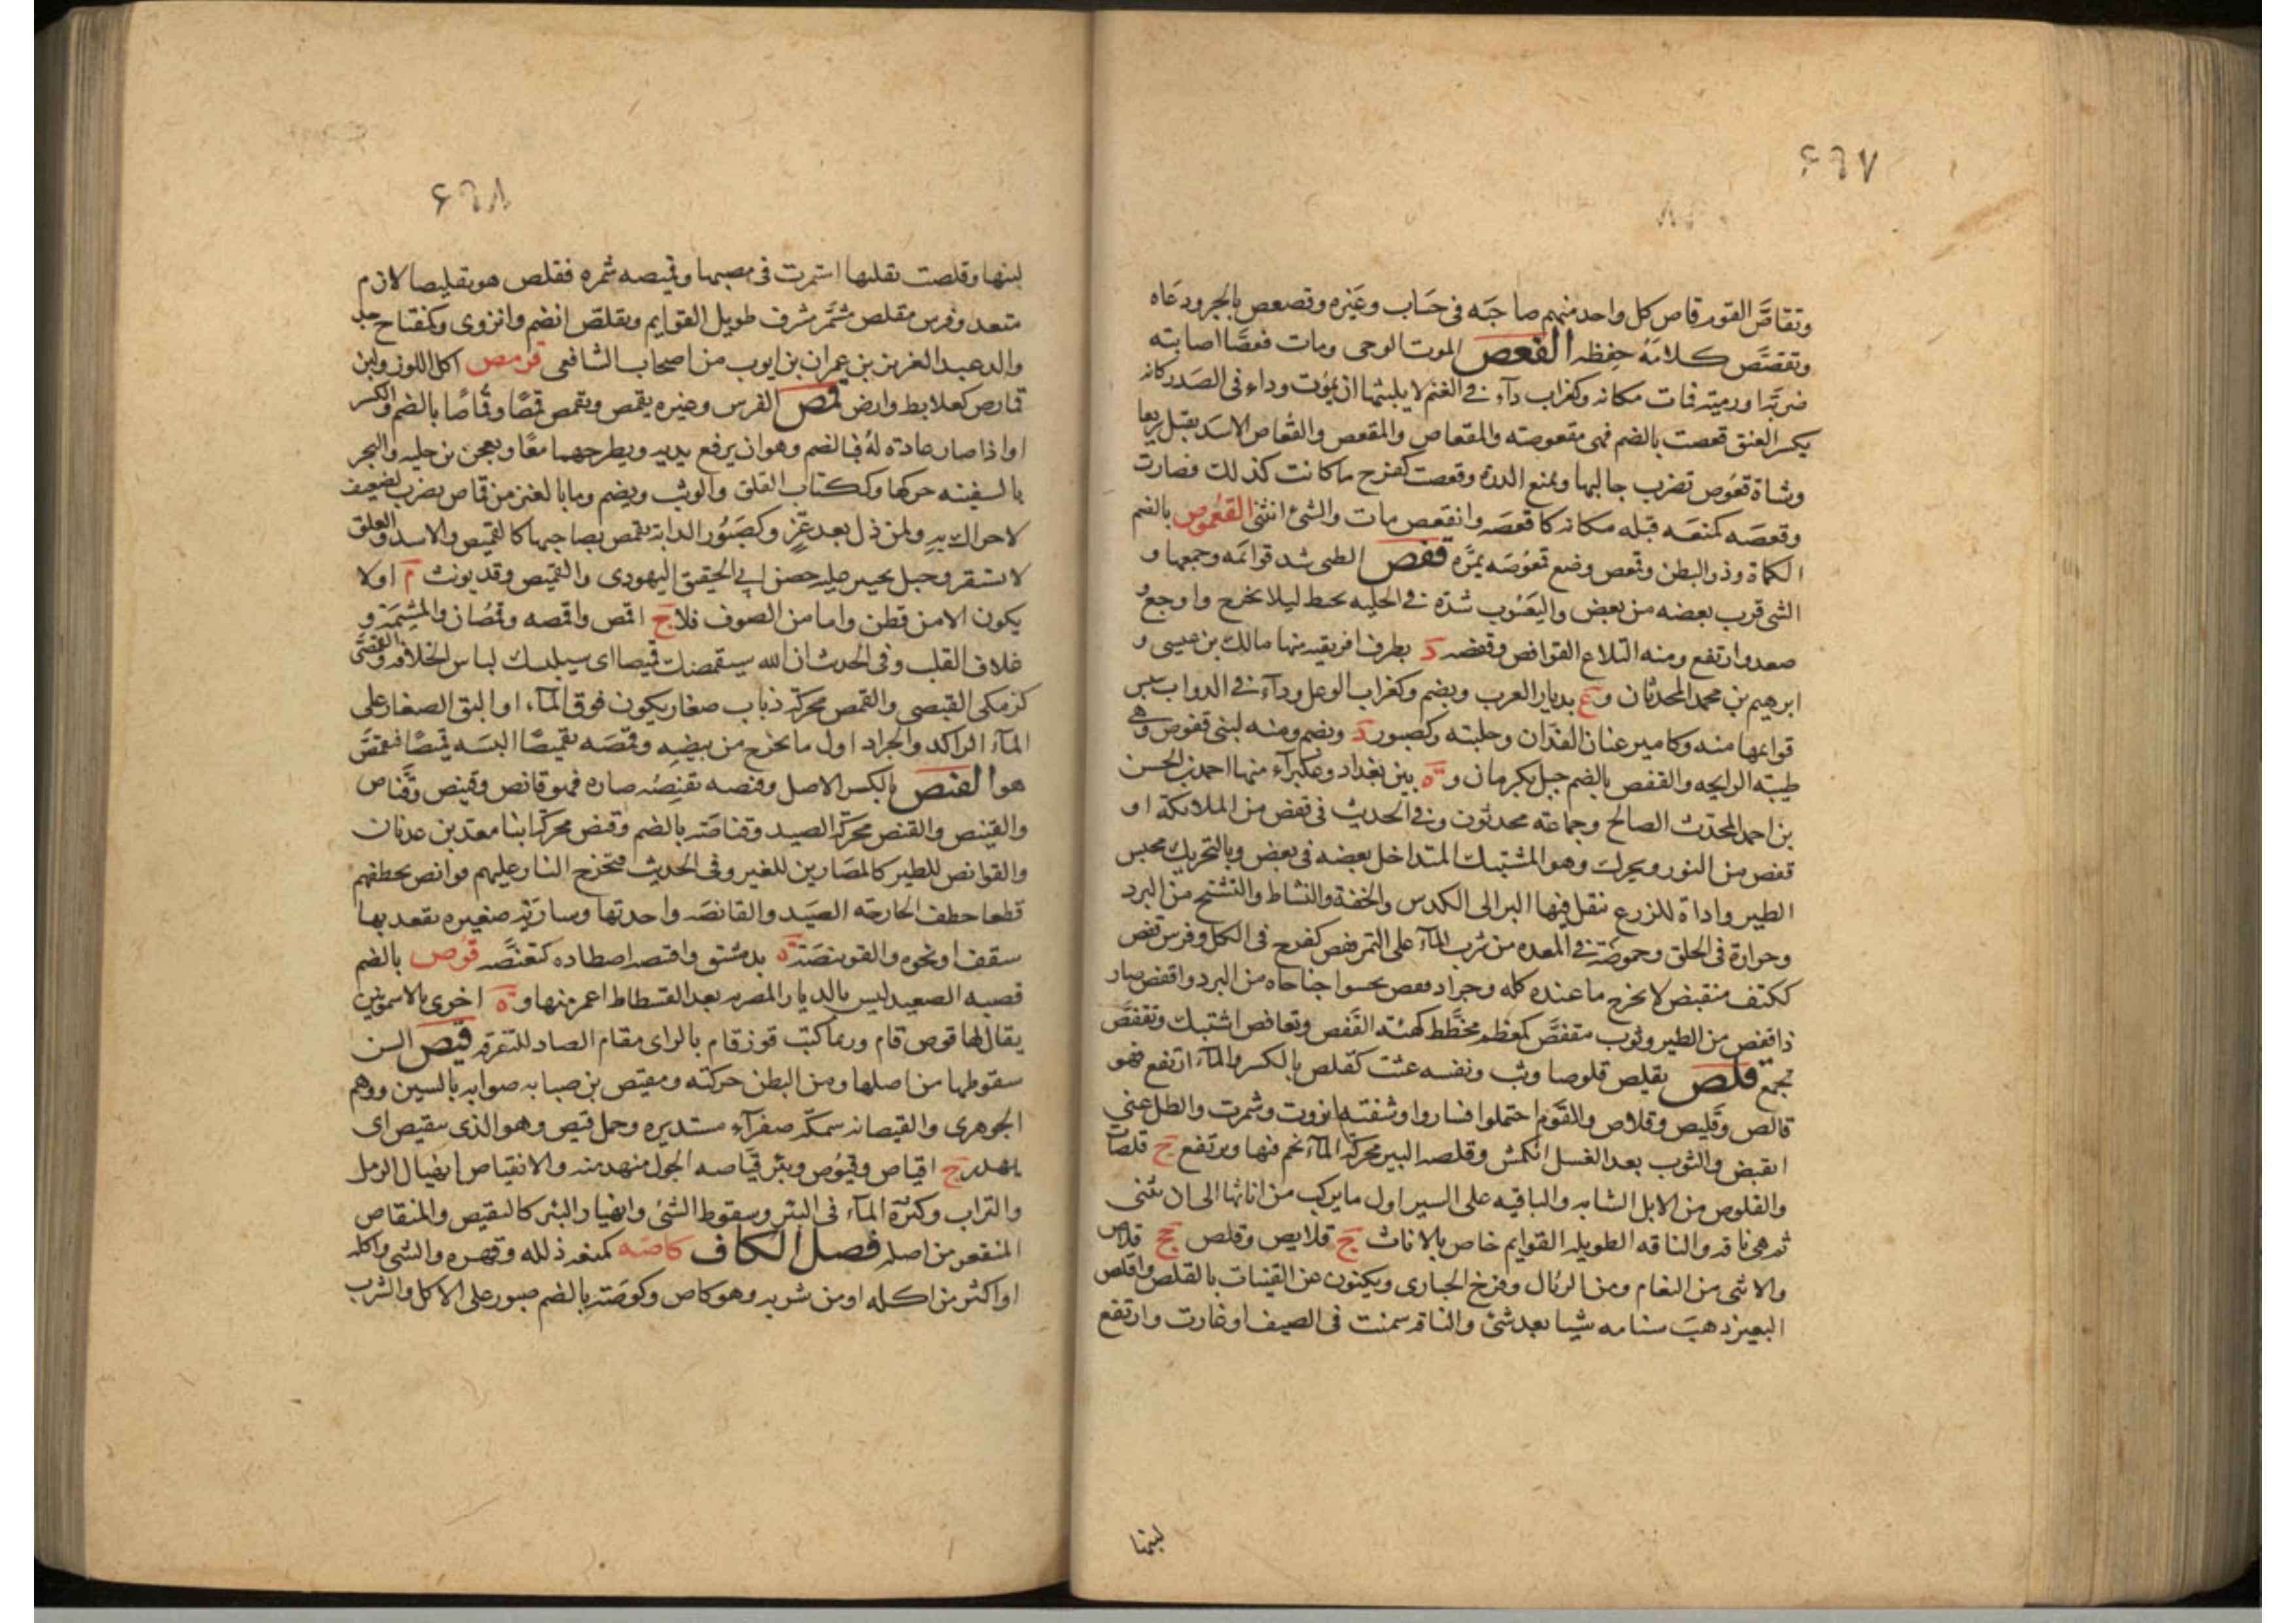 ۶۹۷
وتقاصَّ القوم قاص كل واحد منهم صاحبَه فى حسَاب وغيره وتصعص بالجرو دعَاه
وتقصَّص كلامَهُ حفِظه القعص الموت الوحى ومات قعصًا اصابته
ضربَة اورمية فمات مكانه وكغراب دآء فى الغنم لا يلبثها ان يموت وداء فى الصَدر كانه
يكسر العنق قعصت بالضم فهى مقعوصته والمقعاص والمقعص والقعاص الاسَد يقتل سريعا
وشاة قعوص تضرب جالبها وبمنع الدرة وقعصت كفرح ما كانت كذلك فصارت
وقعصَه كمنعَه قتله مكانه كاقعصَه وانقعص مات والشئ انثنى القُعموص بالضم
الكماة وذو البطن وقعمص وضع قعموصَه بمرَّه قفص الظبى شد قوائمَه وجمعها و
الشى قرب بعضه من بعض واليعَسُوب شدّه فى الخليه بخيط ليلا يخرج واوجع و
صعد وارتفع ومنه التلاع القوافص وقفصه د بطرف افريقيه منها مالك بن عيسى و
ابرهيم بن محمد المحدثان و ع بديار العرب ويضم وكغراب الوعل ودآء فى الدواب ييبس
قوايمها منه وكامير عنان الفدّان وحلبته وكصبور د ويضم ومنه لبنى قفوص وهى
طيبته الرايحه والقفص بالضم جبل بكرمان و ة بين بغداد وعكبرآء منها احمد بن الحسن
بن احمد المحدّث الصالح وجماعته محدثون وفى الحديث فى قفص من الملائكة او
قفص من النور ويحرك وهو المشتبك المتداخل بعضه فى بعض وبالتحريك محبس
الطير واداة للزرع تنقل فيها البر الى الكدس والخفة والنشاط والتشنج من البرد
وحرارة فى الحلق وحموضَة فى المعده من شرب المآء على التمر قفص كفرح فى الكل وفرس قفص
ككتف منقبض لا يخرج ما عنده كله وجراد قفص يحسوا جناحاه من البرد واقفص صار
ذا قفص من الطير وثوب مقفصَّ كمعظم مخطَّط كهيئة القَفص وتعافص اشتبك وتقفصَّ
تجمع قلص يقلِص قلوصا وثب ونفسه غثت كقلص بالكسر والمآء ارتفع فهو
قالص وقَليص وقلاص والقَوم احتملوا فساروا وشفته انزوت وشمرت والظل عنى
انقبض والثوب بعد الغسل انكمش وقلصه البير محركة المآء يجم فيها ويرتفع ج قلصات
والقلوص من الابل الشابه والباقيه على السير اول ما يركب من اناثها الى ان تثنى
ثم هى ناقه والناقه الطويله القوايم خاص بالاناث ج قلايص وقلص جج قلاص
والانثى من النعام ومن الرئال وفرخ الحبارى ويكنون عن الفتيات بالقلص واقلص
البعير ذهبَ سنامه شيا بعد شئ والناقه سمنت فى الصيف او غارت وارتفع
لبنها
۶۹۸
لبنها وقلصت تقليصا استمرت فى مضيها وقميصه شمره فقلص هو تقليصا لازم
متعد وفرس مقلص مشمَّر مشرف طويل القوايم وتقلصّ انضم وانزوى وكمفتاح جد
والد عبد العزيز بن عمران بن ايوب من اصحاب الشافعى قرمص اكل اللوز ولبن
قمارص كعلابط وارض قمص الفرس وغيره يقمص ويقمص قمصًا وقُماصًا بالضم والكسر
او اذا صار عادة لهُ فبالضم وهو ان يرفع يديه ويطرحهما معًا ويعجن برجليه والبحر
بالسفينه حركها وككتاب القلق والوثب ويضم وما بالعير من قماص يضرب لضعيف
لا حراك به ولمن ذل بعد عزٍّ وكصَبُور الدابة تقمص بصاحبها كالقميص والاسد والقلق
لا يستقر وجبل بخيبر عليه حصن ابى الحقيق اليهودى والقميص وقد يونث م او لا
يكون الا من قطن واما من الصوف فلا ج اقمص واقمصه وقُمصان والمشِيَمة و
غلاف القلب وفى الحديث ان الله سيقمصك قميصا اى سيلبسك لباس الخلافه والقمصَّى
كزمكى القبصى والقمص محركة ذباب صغار يكون فوق المآء او البق الصغار على
المآء الراكد والجراد اول ما يخرج من بيضه وقمّصَه تقميصًا البسَه قميصًا فتقمصَّ
هو القنص بالكسر الاصل وقنصه يقنِصُه صاده فهو قانص وقنيص وقَّناص
والقينص والقنص محركة الصيد وقناصَته بالضم وقنص محركة ابنا معد بن عدنان
والقوانص للطير كالمصَارين للغير وفى الحديث فتخرج النار عليهم قوانص تخطفهم
قطعا خطف الجارحه الصيَد والقانصَه واحدتها وساريَة صغيره يعقد بها
سقف او نحوه والقوينصَة ة بدمشق واقتصه اصطاده كتقنصَّه قوص بالضم
قصبه الصعيد ليس بالديار المصريه بعد الفسطاط اعمر منها و ة اخرى بالاسمونين
يقال لها قوص قام وربما كتبت قوز قام بالزاى مقام الصاد للتفرقه قيص السن
سقوطها من اصلها ومن البطن حركته ومقيص بن صبابه صوابه بالسين ووهم
الجوهرى والقيصانه سمكة صفرآء مستديره وحمل قيص وهو الذى يتقيص اى
يهدر ج اقياص وقيوُص وبئر قيَّاصه الجول منهدمته والانقياص انهيال الرمل
والتراب وكثرة المآء فى البئر وسقوط الشئ وانهيار البئر كالتقيص والمنقاص
المنقعر من اصله فصل الكاف كاصَه كمنعه ذلله وقهره والشى واكله
او اكثر من اكله او من شربه وهو كاص وكوصَته بالضم صبور على الاكل والشرب